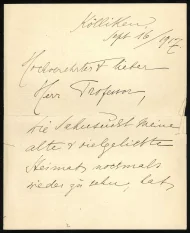 Kölliken,
Sept 16/1917
Hochverehrter & lieber
Herr Professor,
die Sehnsucht meine
alte & vielgeliebte
Heimat nochmals
wieder zu sehen, hat,